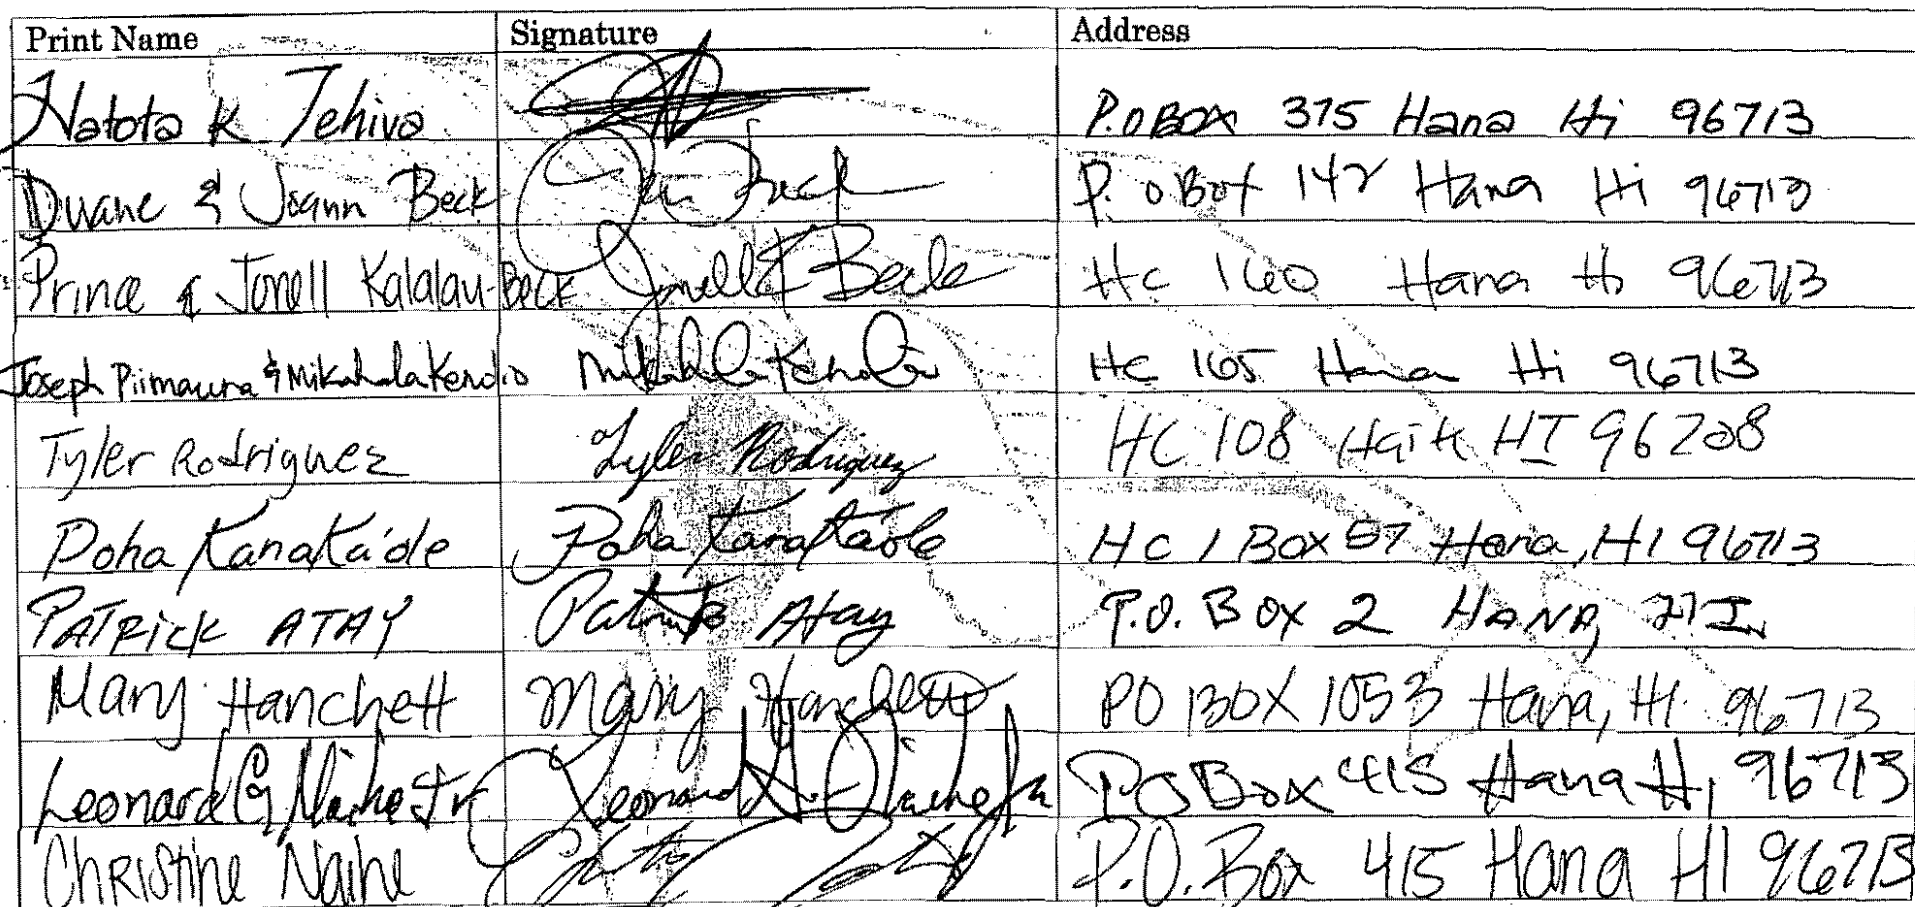 Print Name Signature Address
Natota K Tehiva P.O BOX 375 Hana Hi 96713
Duane & Joann Beck P. O Box 142 Hana Hi 96713
Prince & Jonell Kalalau-Beck Jonell K Beck Hc 160 Hana Hi 96713
Joseph Piimauna & Mikahala Kenolio Mikahala Kenolio HC 165 Hana Hi 96713
Tyler Rodriguez Tyler Rodriguez HC 108 HI
Poha Kanaka'ole Poha Kanaka'ole HC 1 Box 57 Hana, HI 96713
PATRICK ATAY Patrick Atay P.O. BOX 2 HANA, HI.
Mary Hanchett Mary Hanchett PO BOX 1053 Hana, HI 96713
Leonard G Naihe Jr. Leonard G. Naihe Jr PO Box 415 Hana Hi 96713
Christine Naihe P.O. Box 415 Hana HI 96713